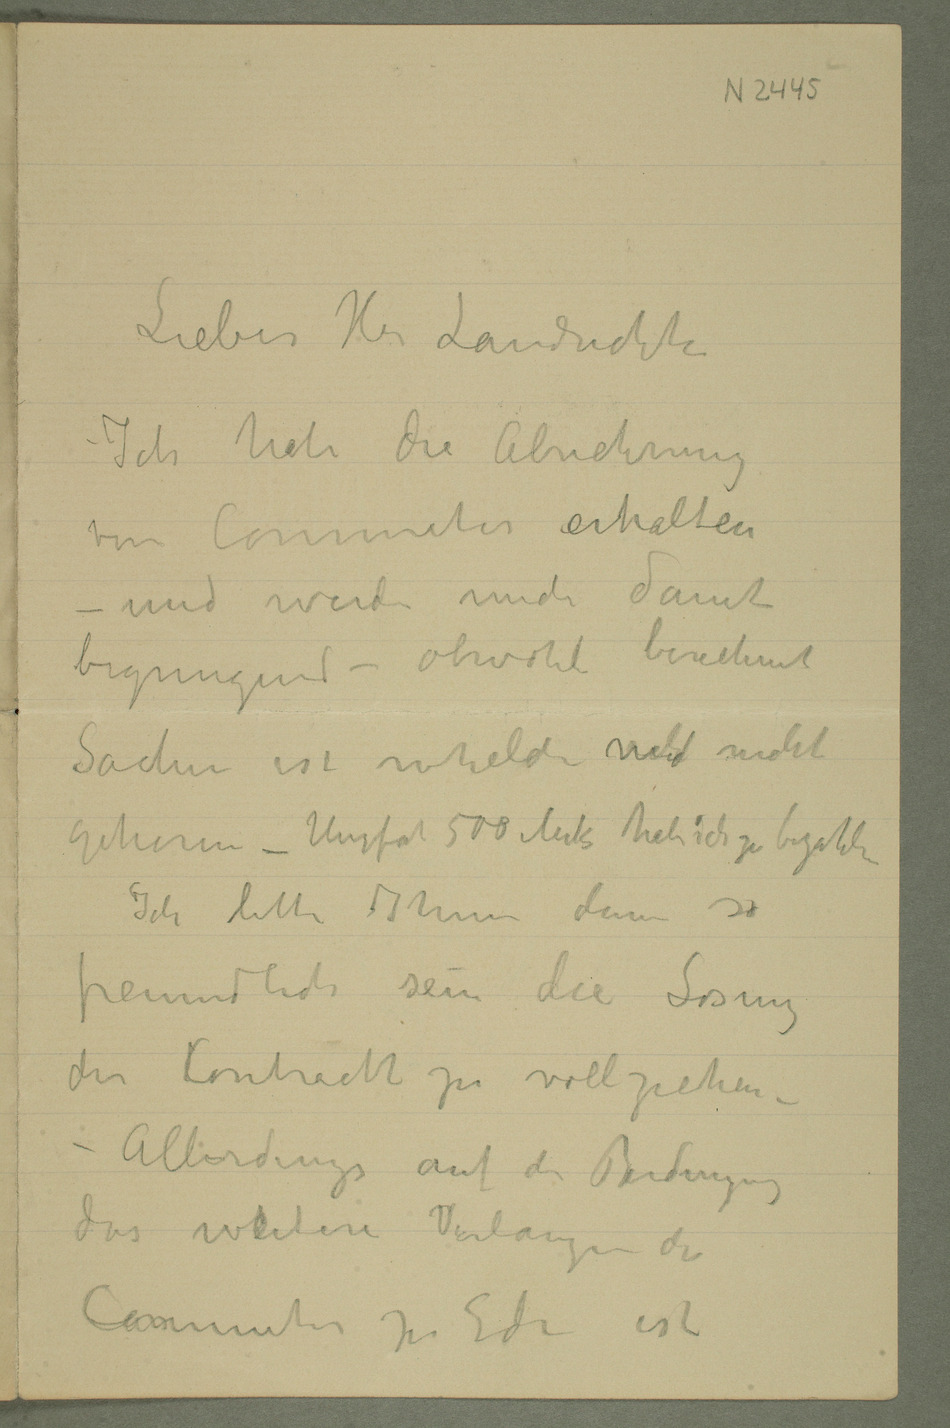 N 2445
Lieber Her Landrichter
– Ich habe die Abrechnung
von Commeter erhalten
– und werde mich damit
begnügend – obwohl berechnet
Sachen ist nicht
– Ungefähr 500 Mark habe ich zu bezahlen
Ich bitte Ihnen dann so
freundlich sein die Lösung
der Kontrackt zu vollziehen –
– Allerdings auf die Bedingung
das weitere Verlangen der
Commeter zu Ede ist